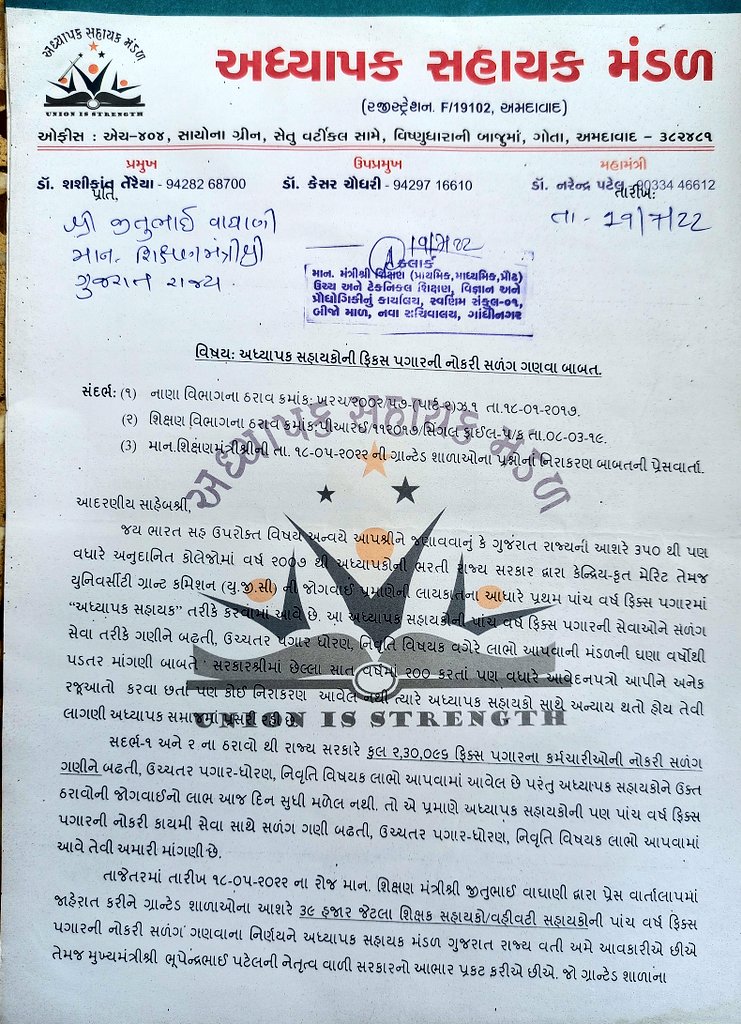 અધ્યાપક સહાયક મંડળ
UNION IS STRENGTH
અધ્યાપક સહાયક મંડળ
(રજીસ્ટ્રેશન. F/19102, અમદાવાદ)
ઓફીસ : એચ-૪૦૪, સાયોના ગ્રીન, સેતુ વર્ટીકલ સામે, વિષ્ણુધારાની બાજુમાં, ગોતા, અમદાવાદ - ૩૮૨૪૮૧
પ્રમુખ ઉપપ્રમુખ મહામંત્રી
ડૉ. શશીકાંત તેરૈયા - 94282 68700 ડૉ. કેસર ચૌધરી - 94297 16610 ડૉ. નરેન્દ્ર પટેલ - 90334 46612
પ્રતિ, તારીખ:
શ્રી જીતુભાઈ વાઘાણી તા - ૧૯/૭/૨૨
માન. શિક્ષણમંત્રીશ્રી
ગુજરાત રાજ્ય.
૧૯/૭/૨૨
કલાર્ક
માન. મંત્રીશ્રી શિક્ષણ (પ્રાથમિક,માધ્યમિક,પ્રૌઢ)
ઉચ્ચ અને ટેકનિકલ શિક્ષણ, વિજ્ઞાન અને
પ્રૌધોગિકીનું કાર્યાલય, સ્વર્ણિમ સંકુલ-૦૧,
બીજો માળ, નવા સચિવાલય, ગાંધીનગર
વિષય: અધ્યાપક સહાયકોની ફિકસ પગારની નોકરી સળંગ ગણવા બાબત.
સંદર્ભ: (૧) નાણા વિભાગના ઠરાવ ક્રમાંક: ખરચ/૨૦૦૨/૫૭-(પાર્ટ-૨)ઝ.૧ તા.૧૮-૦૧-૨૦૧૭.
(૨) શિક્ષણ વિભાગના ઠરાવ ક્રમાંક:પીઆરઈ/૧૧૨૦૧૭/સિંગલ ફાઈલ-૫/ક તા.૦૮-૦૩-૧૯.
(૩) માન.શિક્ષણમંત્રીશ્રીની તા. ૧૮-૦૫-૨૦૨૨ ની ગ્રાન્ટેડ શાળાઓના પ્રશ્નોનાં નિરાકરણ બાબતની પ્રેસવાર્તા.
અધ્યાપક સહાયક મંડળ
આદરણીય સાહેબશ્રી,
જય ભારત સહ ઉપરોક્ત વિષય અન્વયે આપશ્રીને જણાવવાનું કે ગુજરાત રાજ્યની આશરે ૩૫૦ થી પણ
વધારે અનુદાનિત કોલેજોમાં વર્ષ ૨૦૦૭ થી અધ્યાપકોની ભરતી રાજ્ય સરકાર દ્વારા કેન્દ્રિય-કૃત મેરિટ તેમજ
યુનિવર્સીટી ગ્રાન્ટ કમિશન (યુ.જી.સી) ની જોગવાઈ પ્રમાણેની લાયકાતના આધારે પ્રથમ પાંચ વર્ષ ફિક્સ પગારમાં
“અધ્યાપક સહાયક” તરીકે કરવામાં આવે છે. આ અધ્યાપક સહાયકોની પાંચ વર્ષ ફિક્સ પગારની સેવાઓને સળંગ
સેવા તરીકે ગણીને બઢતી, ઉચ્ચતર પગાર ધોરણ, નિવૃતિ વિષયક વગેરે લાભો આપવાની મંડળની ઘણા વર્ષોથી
પડતર માંગણી બાબતે સરકારશ્રીમાં છેલ્લા સાત વર્ષમાં ૨૦૦ કરતાં પણ વધારે આવેદનપત્રો આપીને અનેક
રજૂઆતો કરવા છતાં પણ કોઈ નિરાકરણ આવેલ નથી ત્યારે અધ્યાપક સહાયકો સાથે અન્યાય થતો હોય તેવી
લાગણી અધ્યાપક સમાજમાં પ્રસરી રહી છે.
UNION IS STRENGTH
સદર્ભ-૧ અને ૨ ના ઠરાવો થી રાજ્ય સરકારે કુલ ૨,૩૦,૦૯૬ ફિક્સ પગારના કર્મચારીઓની નોકરી સળંગ
ગણીને બઢતી, ઉચ્ચતર પગાર-ધોરણ, નિવૃતિ વિષયક લાભો આપવામાં આવેલ છે પરંતુ અધ્યાપક સહાયકોને ઉક્ત
ઠરાવોની જોગવાઈનો લાભ આજ દિન સુધી મળેલ નથી. તો એ પ્રમાણે અધ્યાપક સહાયકોની પણ પાંચ વર્ષ ફિક્સ
પગારની નોકરી કાયમી સેવા સાથે સળંગ ગણી બઢતી, ઉચ્ચતર પગાર-ધોરણ, નિવૃતિ વિષયક લાભો આપવામાં
આવે તેવી અમારી માંગણી છે.
તાજેતરમાં તારીખ ૧૮-૦૫-૨૦૨૨ ના રોજ માન. શિક્ષણ મંત્રીશ્રી જીતુભાઈ વાઘાણી દ્વારા પ્રેસ વાર્તાલાપમાં
જાહેરાત કરીને ગ્રાન્ટેડ શાળાઓના આશરે ૩૯ હજાર જેટલા શિક્ષક સહાયકો/વહીવટી સહાયકોની પાંચ વર્ષ ફિક્સ
પગારની નોકરી સળંગ ગણવાના નિર્ણયને અધ્યાપક સહાયક મંડળ ગુજરાત રાજ્ય વતી અમે આવકારીએ છીએ
તેમજ મુખ્યમંત્રીશ્રી ભૂપેન્દ્રભાઈ પટેલની નેતૃત્વ વાળી સરકારનો આભાર પ્રકટ કરીએ છીએ. જો ગ્રાન્ટેડ શાળાના